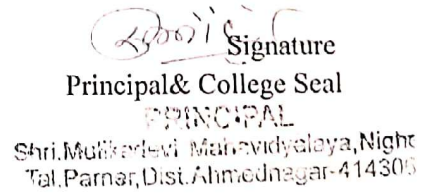 Signature
Principal& College Seal
PRINCIPAL
Shri.Mulikadevi Mahavidyalaya,Nighoj
Tal.Parner,Dist.Ahmednagar-414306